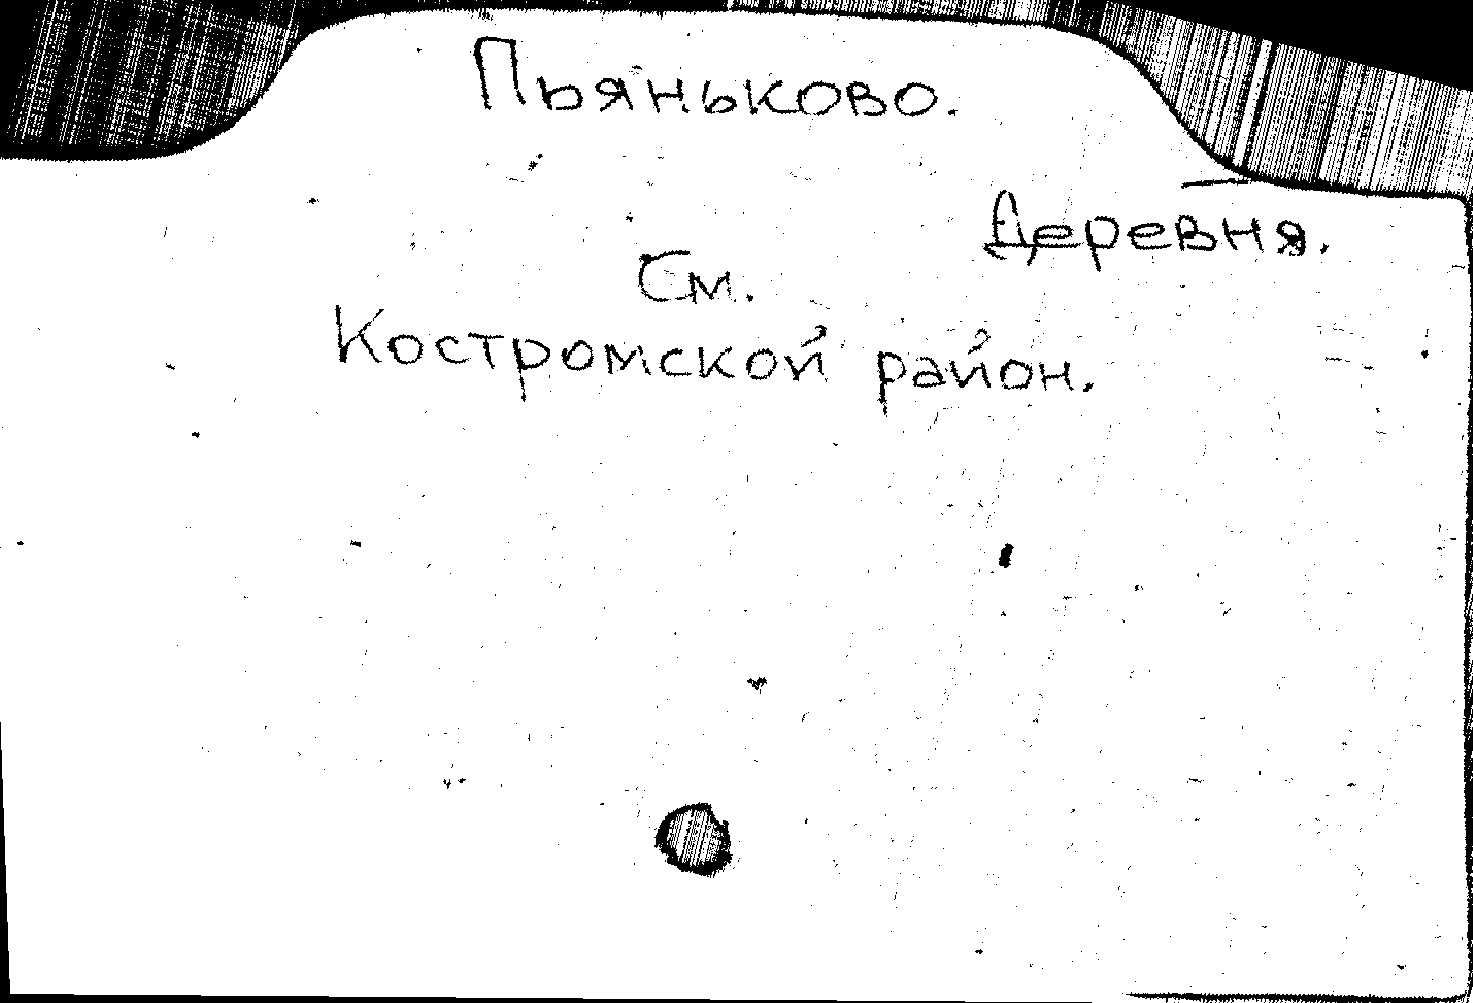 Пьяньково.
Деревня.
См.
Костромской район.